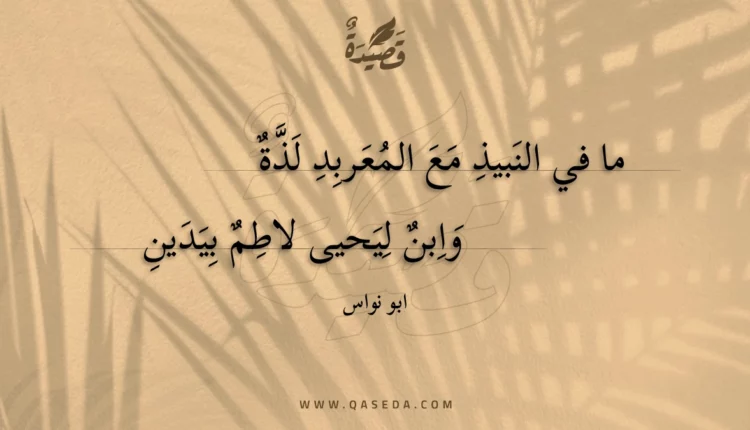 قَصِيدَةٌ
ما في النَبيذِ مَعَ المُعَربِدِ لَذَّةٌ
وَاِبنٌ لِيَحيى لاطِمٌ بِيَدَينِ
ابو نواس
WWW.QASEDA.COM